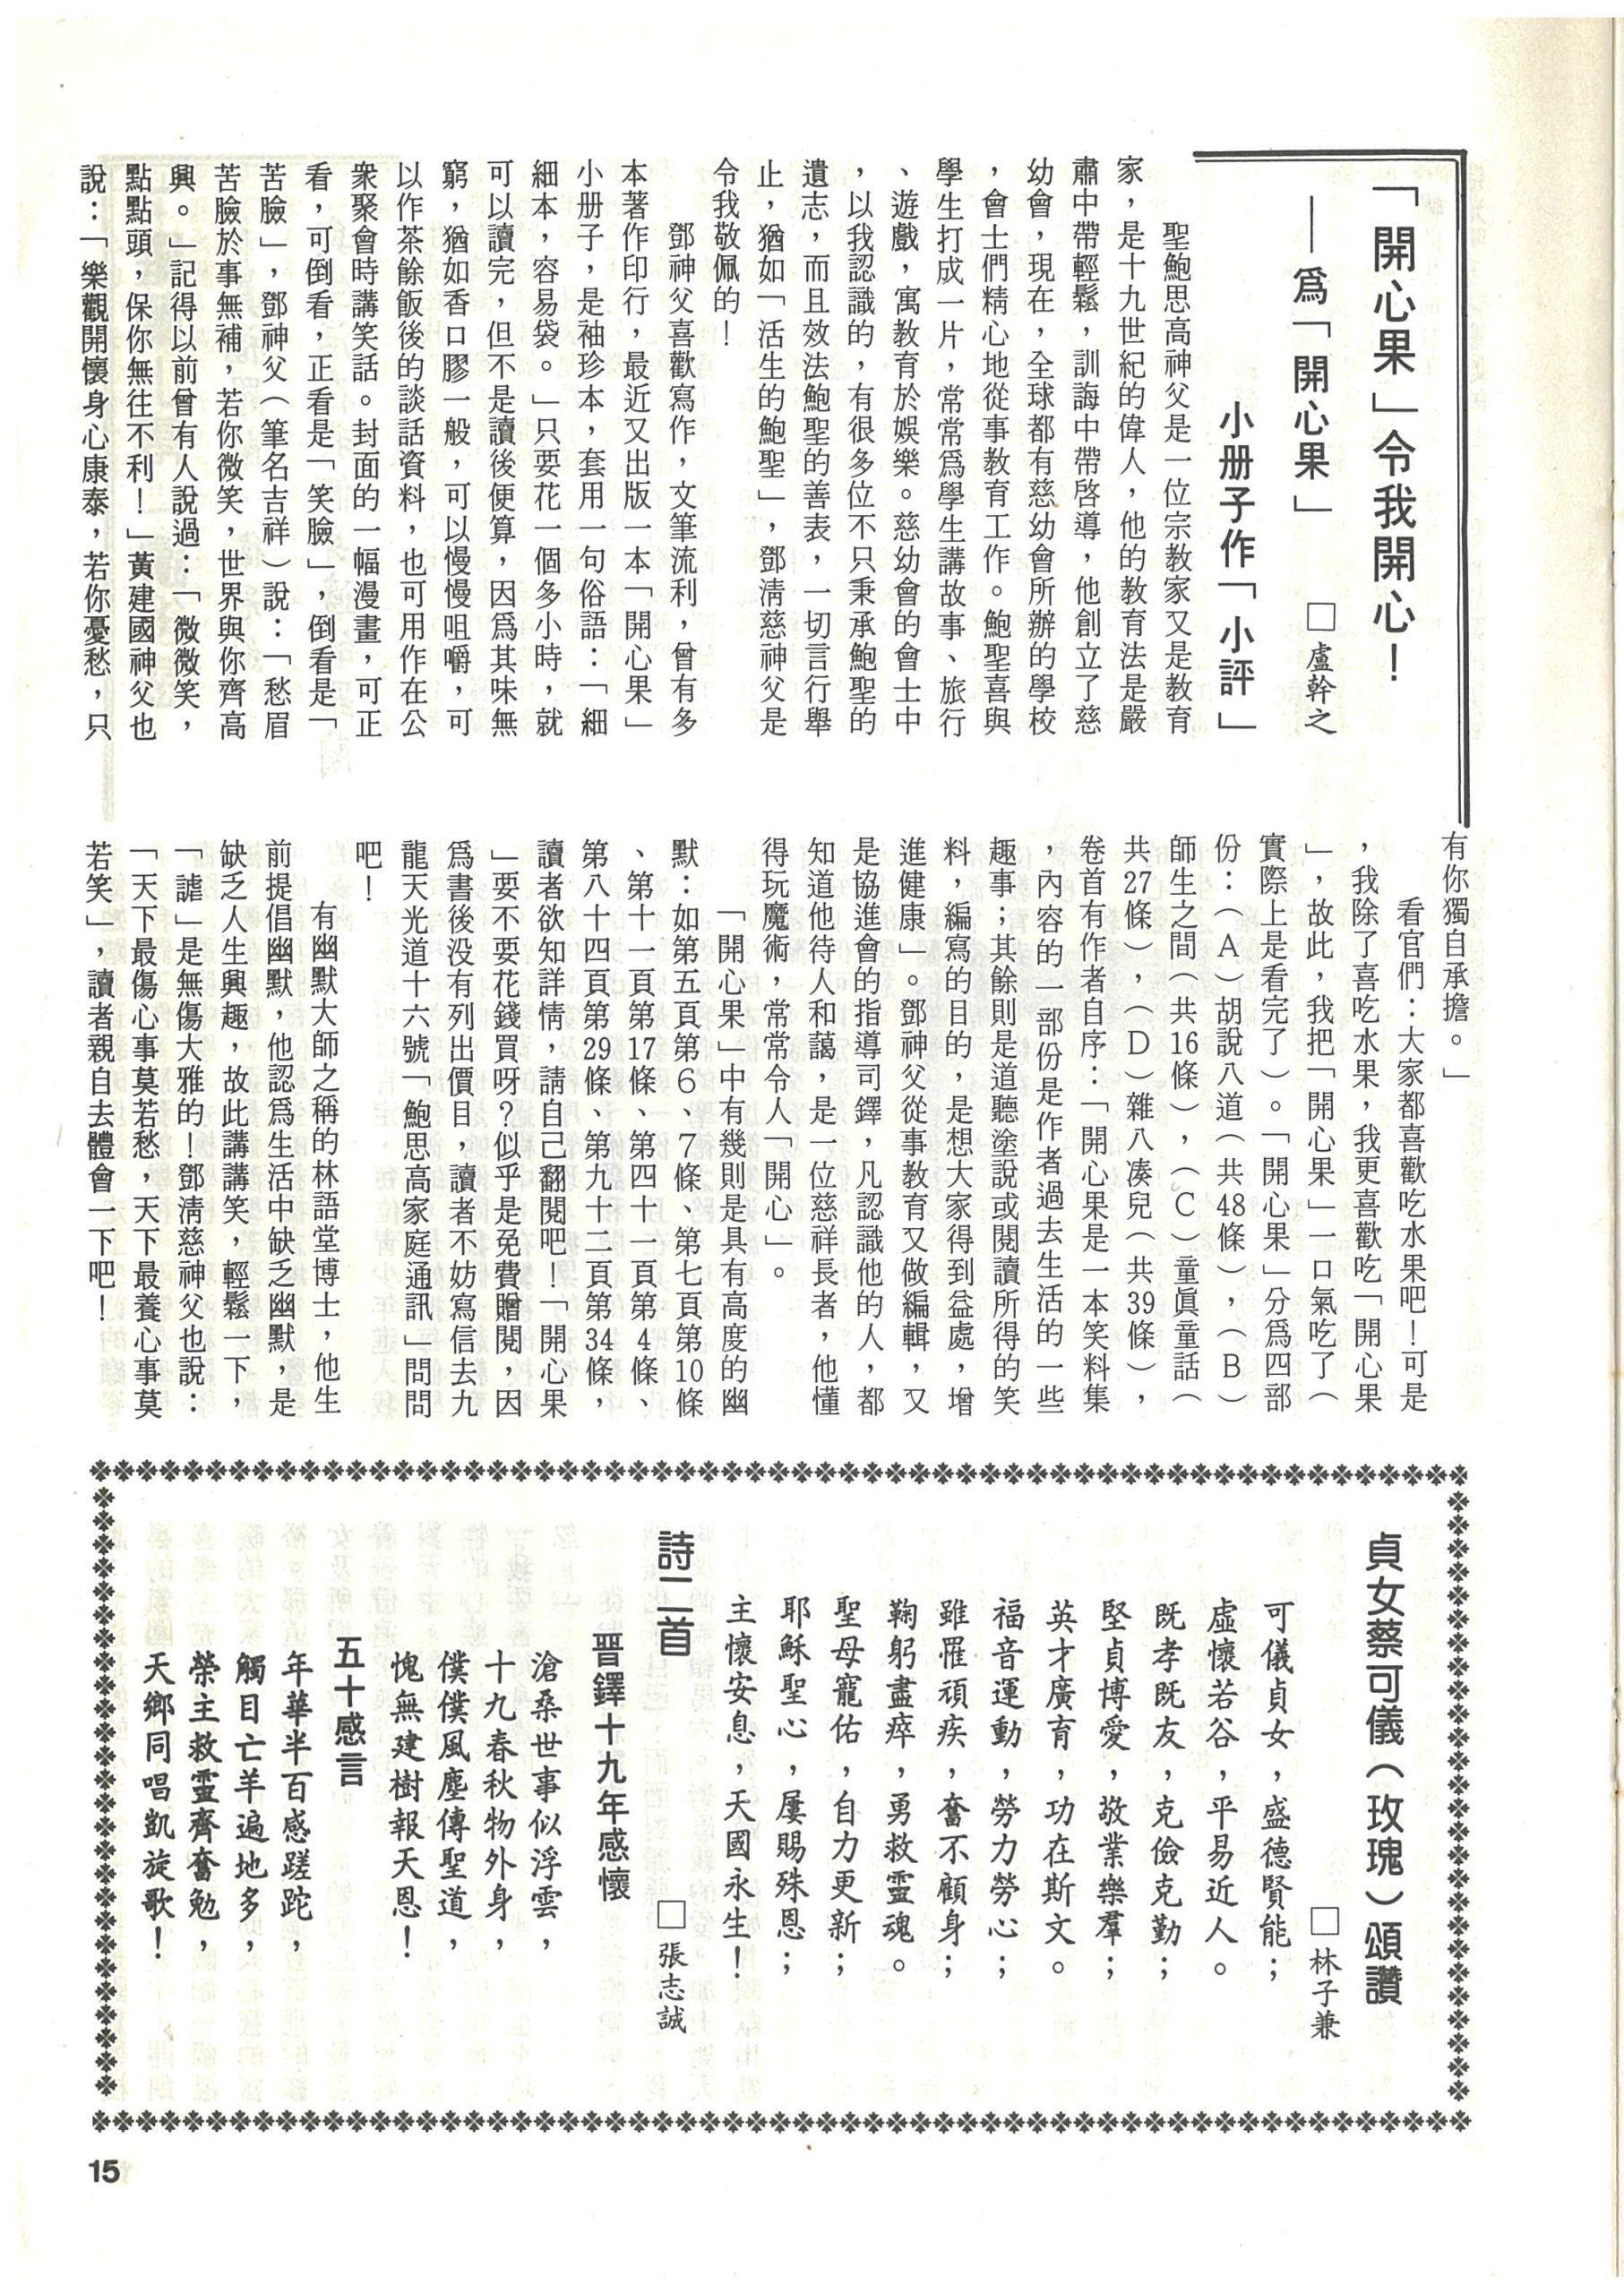 「開心果」令我開心！
——為「開心果」
小册子作「小評」
□盧幹之
聖鮑思高神父是一位宗教家又是教育
家，是十九世紀的偉人，他的教育法是嚴
肅中帶輕鬆，訓誨中帶啓導，他創立了慈
幼會，現在，全球都有慈幼會所辦的學校
，會士們精心地從事教育工作。鮑聖喜與
學生打成一片，常常爲學生講故事、旅行
、遊戲，寓教育於娛樂。慈幼會的會士中
，以我認識的，有很多位不只秉承鮑聖的
遺志，而且效法鮑聖的善表，一切言行舉
止，猶如「活生的鮑聖」，鄧淸慈神父是
令我敬佩的！
鄧神父喜歡寫作，文筆流利，曾有多
本著作印行，最近又出版一本「開心果」
小册子，是袖珍本，套用一句俗語：「細
細本，容易袋。」只要花一個多小時，就
可以讀完，但不是讀後便算，因爲其味無
窮，猶如香口膠一般，可以慢慢咀嚼，可
以作茶餘飯後的談話資料，也可用作在公
衆聚會時講笑話。封面的一幅漫畫，可正
看，可倒看，正看是「笑臉」，倒看是「
苦臉」，鄧神父（筆名吉祥）說：「愁眉
苦臉於事無補，若你微笑，世界與你齊高
興。」記得以前曾有人說過：「微微笑，
點點頭，保你無往不利！」黃建國神父也
說：「樂觀開懷身心康泰，若你憂愁，只
有你獨自承擔。」
看官們：大家都喜歡吃水果吧！可是
，我除了喜吃水果，我更喜歡吃「開心果
」，故此，我把「開心果」一口氣吃了（
實際上是看完了）。「開心果」分爲四部
份：（A）胡說八道（共48條），（B）
師生之間（共16條），（C）童眞童話（
共27條），（D）雜八凑兒（共39條），
卷首有作者自序：「開心果是一本笑料集
，內容的一部份是作者過去生活的一些
趣事；其餘則是道聽塗說或閱讀所得的笑
料，編寫的目的，是想大家得到益處，增
進健康」。鄧神父從事教育又做編輯，又
是協進會的指導司鐸，凡認識他的人，都
知道他待人和藹，是一位慈祥長者，他懂
得玩魔術，常常令人「開心」。
「開心果」中有幾則是具有高度的幽
默：如第五頁第6、7條、第七頁第10條
、第十一頁第17條、第四十一頁第4條、
第八十四頁第29條、第九十二頁第34條，
讀者欲知詳情，請自己翻閱吧！「開心果
」要不要花錢買呀？似乎是免費贈閱，因
爲書後没有列出價目，讀者不妨寫信去九
龍天光道十六號「鮑思高家庭通訊」問問
吧！
有幽默大師之稱的林語堂博士，他生
前提倡幽默，他認爲生活中缺乏幽默，是
缺乏人生興趣，故此講講笑，輕鬆一下，
「謔」是無傷大雅的！鄧淸慈神父也說：
「天下最傷心事莫若愁，天下最養心事莫
若笑」，讀者親自去體會一下吧！
貞女蔡可儀（玫瑰）頌讚
□林子兼
可儀貞女，盛德賢能；
虛懷若谷，平易近人。
既孝既友，克儉克勤；
堅貞博愛，敬業樂羣；
英才廣育，功在斯文。
福音運動，勞力勞心；
雖罹頑疾，奮不顧身；
鞠躬盡瘁，勇救靈魂。
聖母寵佑，自力更新；
耶穌聖心，屢賜殊恩；
主懷安息，天國永生！
詩二首
□張志誠
晋鐸十九年感懷
滄桑世事似浮雲，
十九春秋物外身，
僕僕風塵傳聖道，
愧無建樹報天恩！
五十感言
年華半百感蹉跎，
觸目亡羊遍地多，
榮主救靈齊奮勉，
天鄉同唱凱旋歌！
15